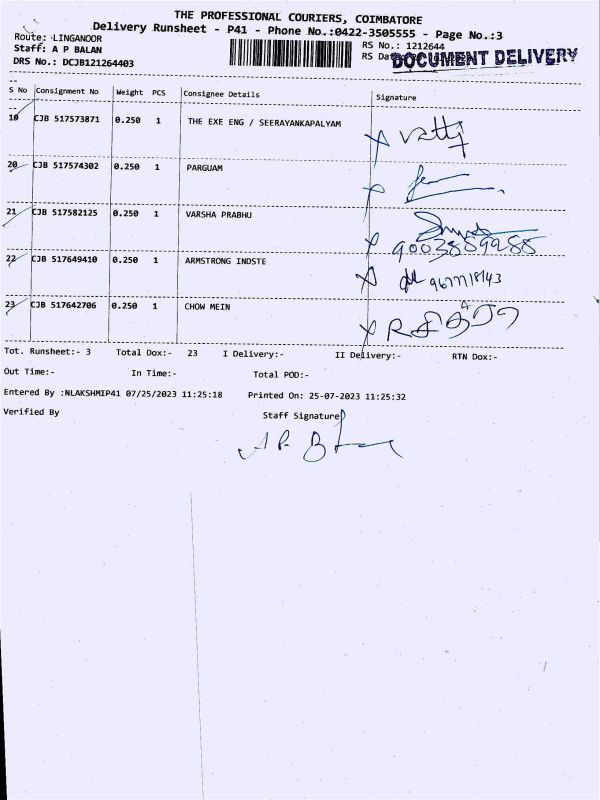 THE PROFESSIONAL COURIERS, COIMBATORE
Delivery Runsheet - P41 - Phone No.:0422-3505555 - Page No.:3
Route: LINGANOOR
Staff: A P BALAN
DRS No.: DCJB121264403
RS No.: 1212644
RS Da
DOCUMENT DELIVERY
S No Consignment No Weight PCS Consignee Details Signature
19 CJB 517573871 0.250 1 THE EXE ENG / SEERAYANKAPALYAM
20 CJB 517574302 0.250 1 PARGUAM
21 CJB 517582125 0.250 1 VARSHA PRABHU
22 CJB 517649410 0.250 1 ARMSTRONG INDSTE
23 CJB 517642706 0.250 1 CHOW MEIN
Tot. Runsheet:- 3 Total Dox:- 23 I Delivery:- II Delivery:- RTN Dox:-
Out Time:- In Time:- Total POD:-
Entered By :NLAKSHMIP41 07/25/2023 11:25:18 Printed On: 25-07-2023 11:25:32
Verified By Staff Signature